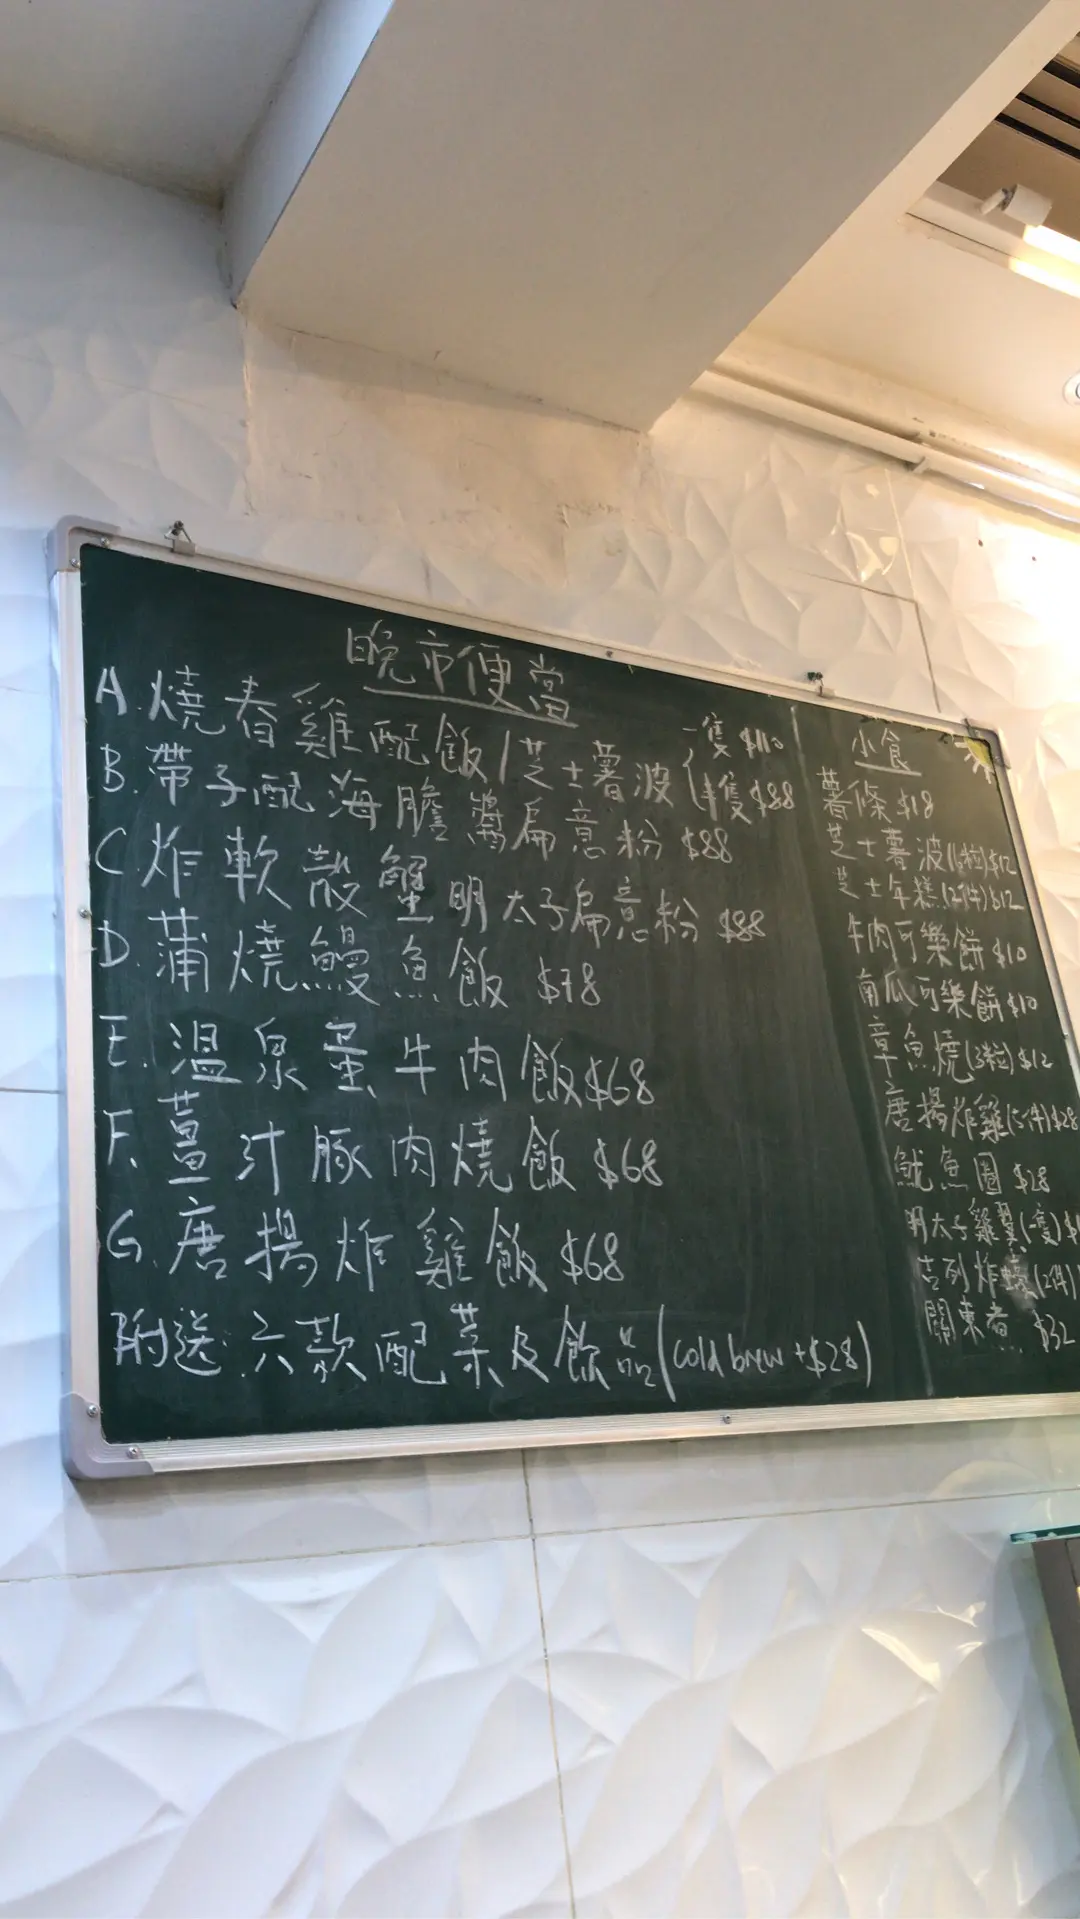 晚市便當
A. 燒春雞配飯/芝士薯波 (一隻 $110
半隻 $88
B. 帶子配海膽醬扁意粉 $88
C. 炸軟殼蟹明太子扁意粉 $88
D. 蒲燒鰻魚飯 $78
E. 溫泉蛋牛肉飯 $68
F. 薑汁豚肉燒飯 $68
G. 唐揚炸雞飯 $68
附送:六款配菜及飲品(cold brew +$28)
小食
薯條 $18
芝士薯波(6粒)$12
芝士年糕(2件)$12
牛肉可樂餅 $10
南瓜可樂餅 $10
章魚燒(3粒) $12
唐揚炸雞(5件)$28
魷魚圈 $28
明太子雞翼(一隻)
吉列炸蠔(2件)
關東煮 $32